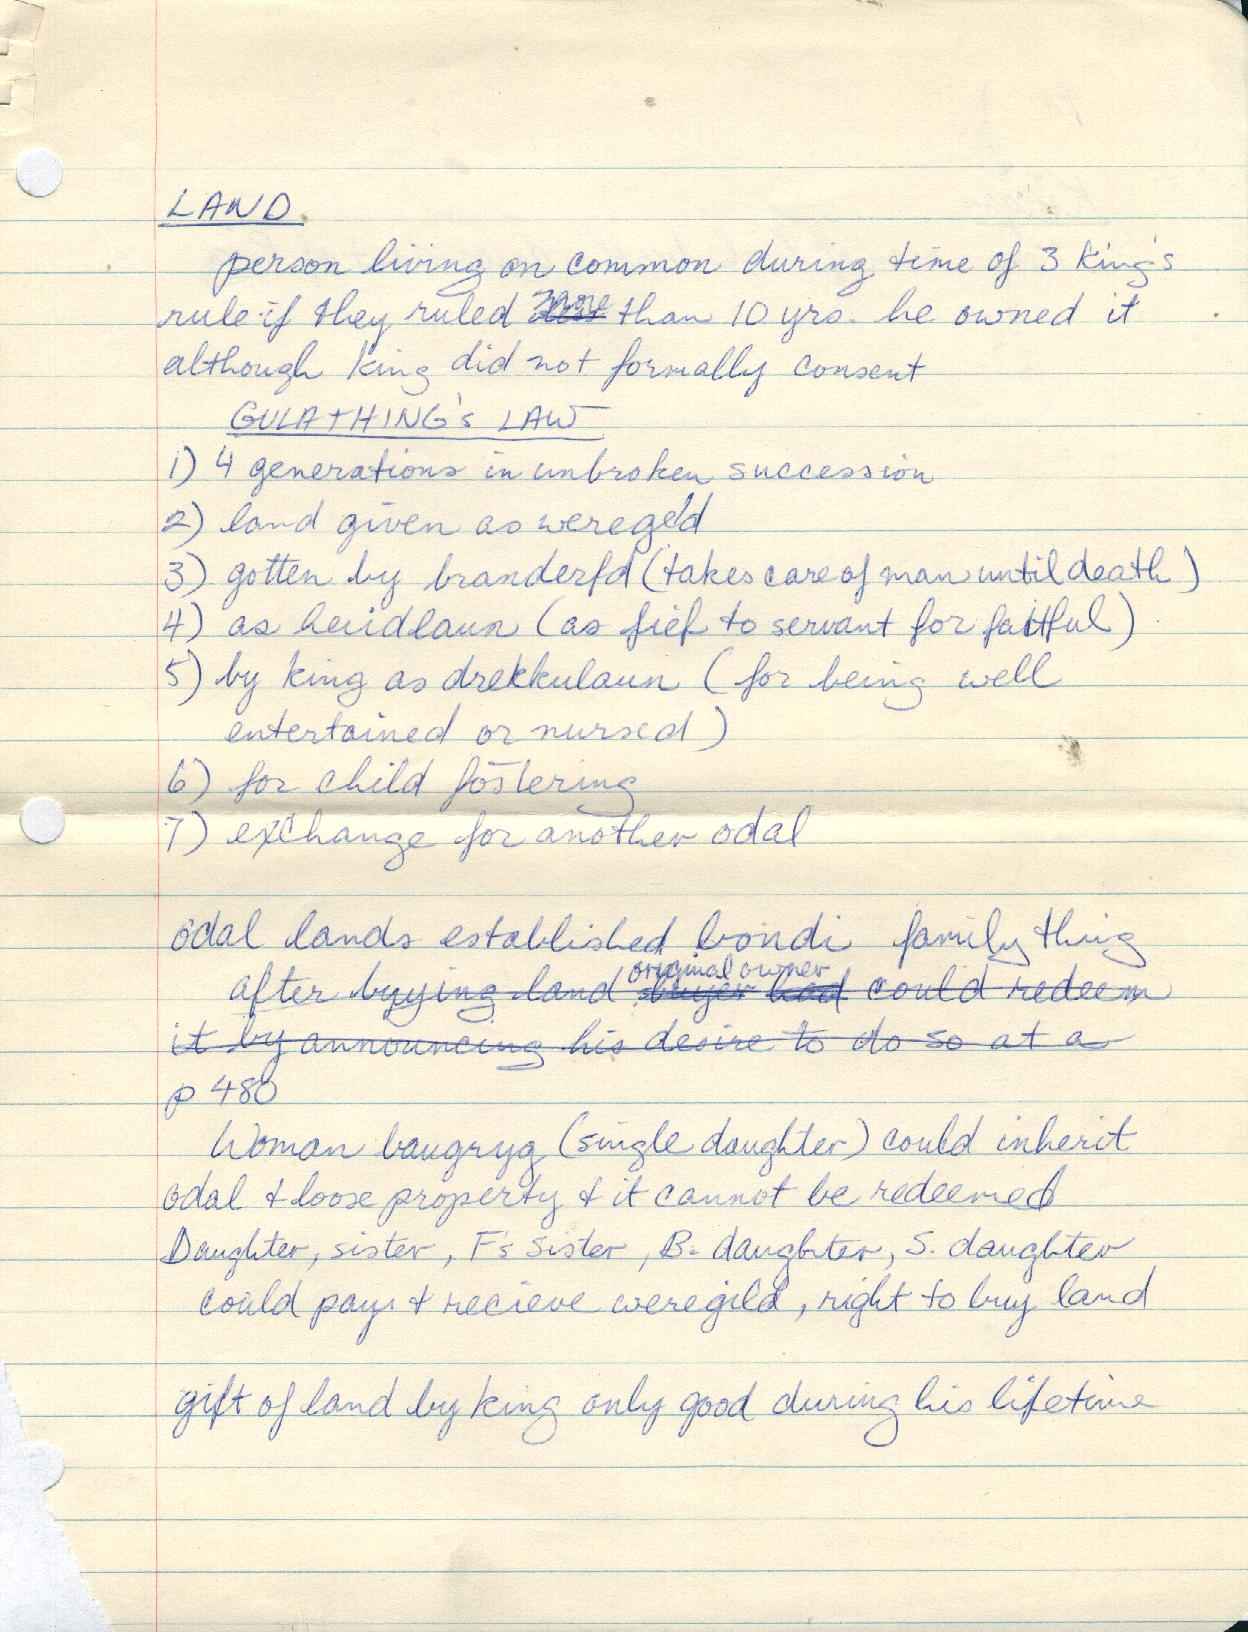 LAND
person living on common during time of 3 King's
rule if they ruled more than 10 yrs. he owned it
although king did not formally consent
GULATHING's LAW
1) 4 generations in unbroken succession
2) land given as weregeld
3) gotten by branderfd (takes care of man until death)
4) as heidlaun (as fief to servant for faitful)
5) by king as drekkulaun (for being well
entertained or nursed)
6) for child fostering
7) exchange for another odal
odal lands established bondi family thing
after buying land original owner could redeem
it by announcing his desire to do so at a
p 480
Woman baugryg (single daughter) could inherit
odal + loose property + it cannot be redeemed
Daughter, sister, F's Sister, B. daughter, S. daughter
could pay + recieve weregild, right to buy land
gift of land by king only good during his lifetime